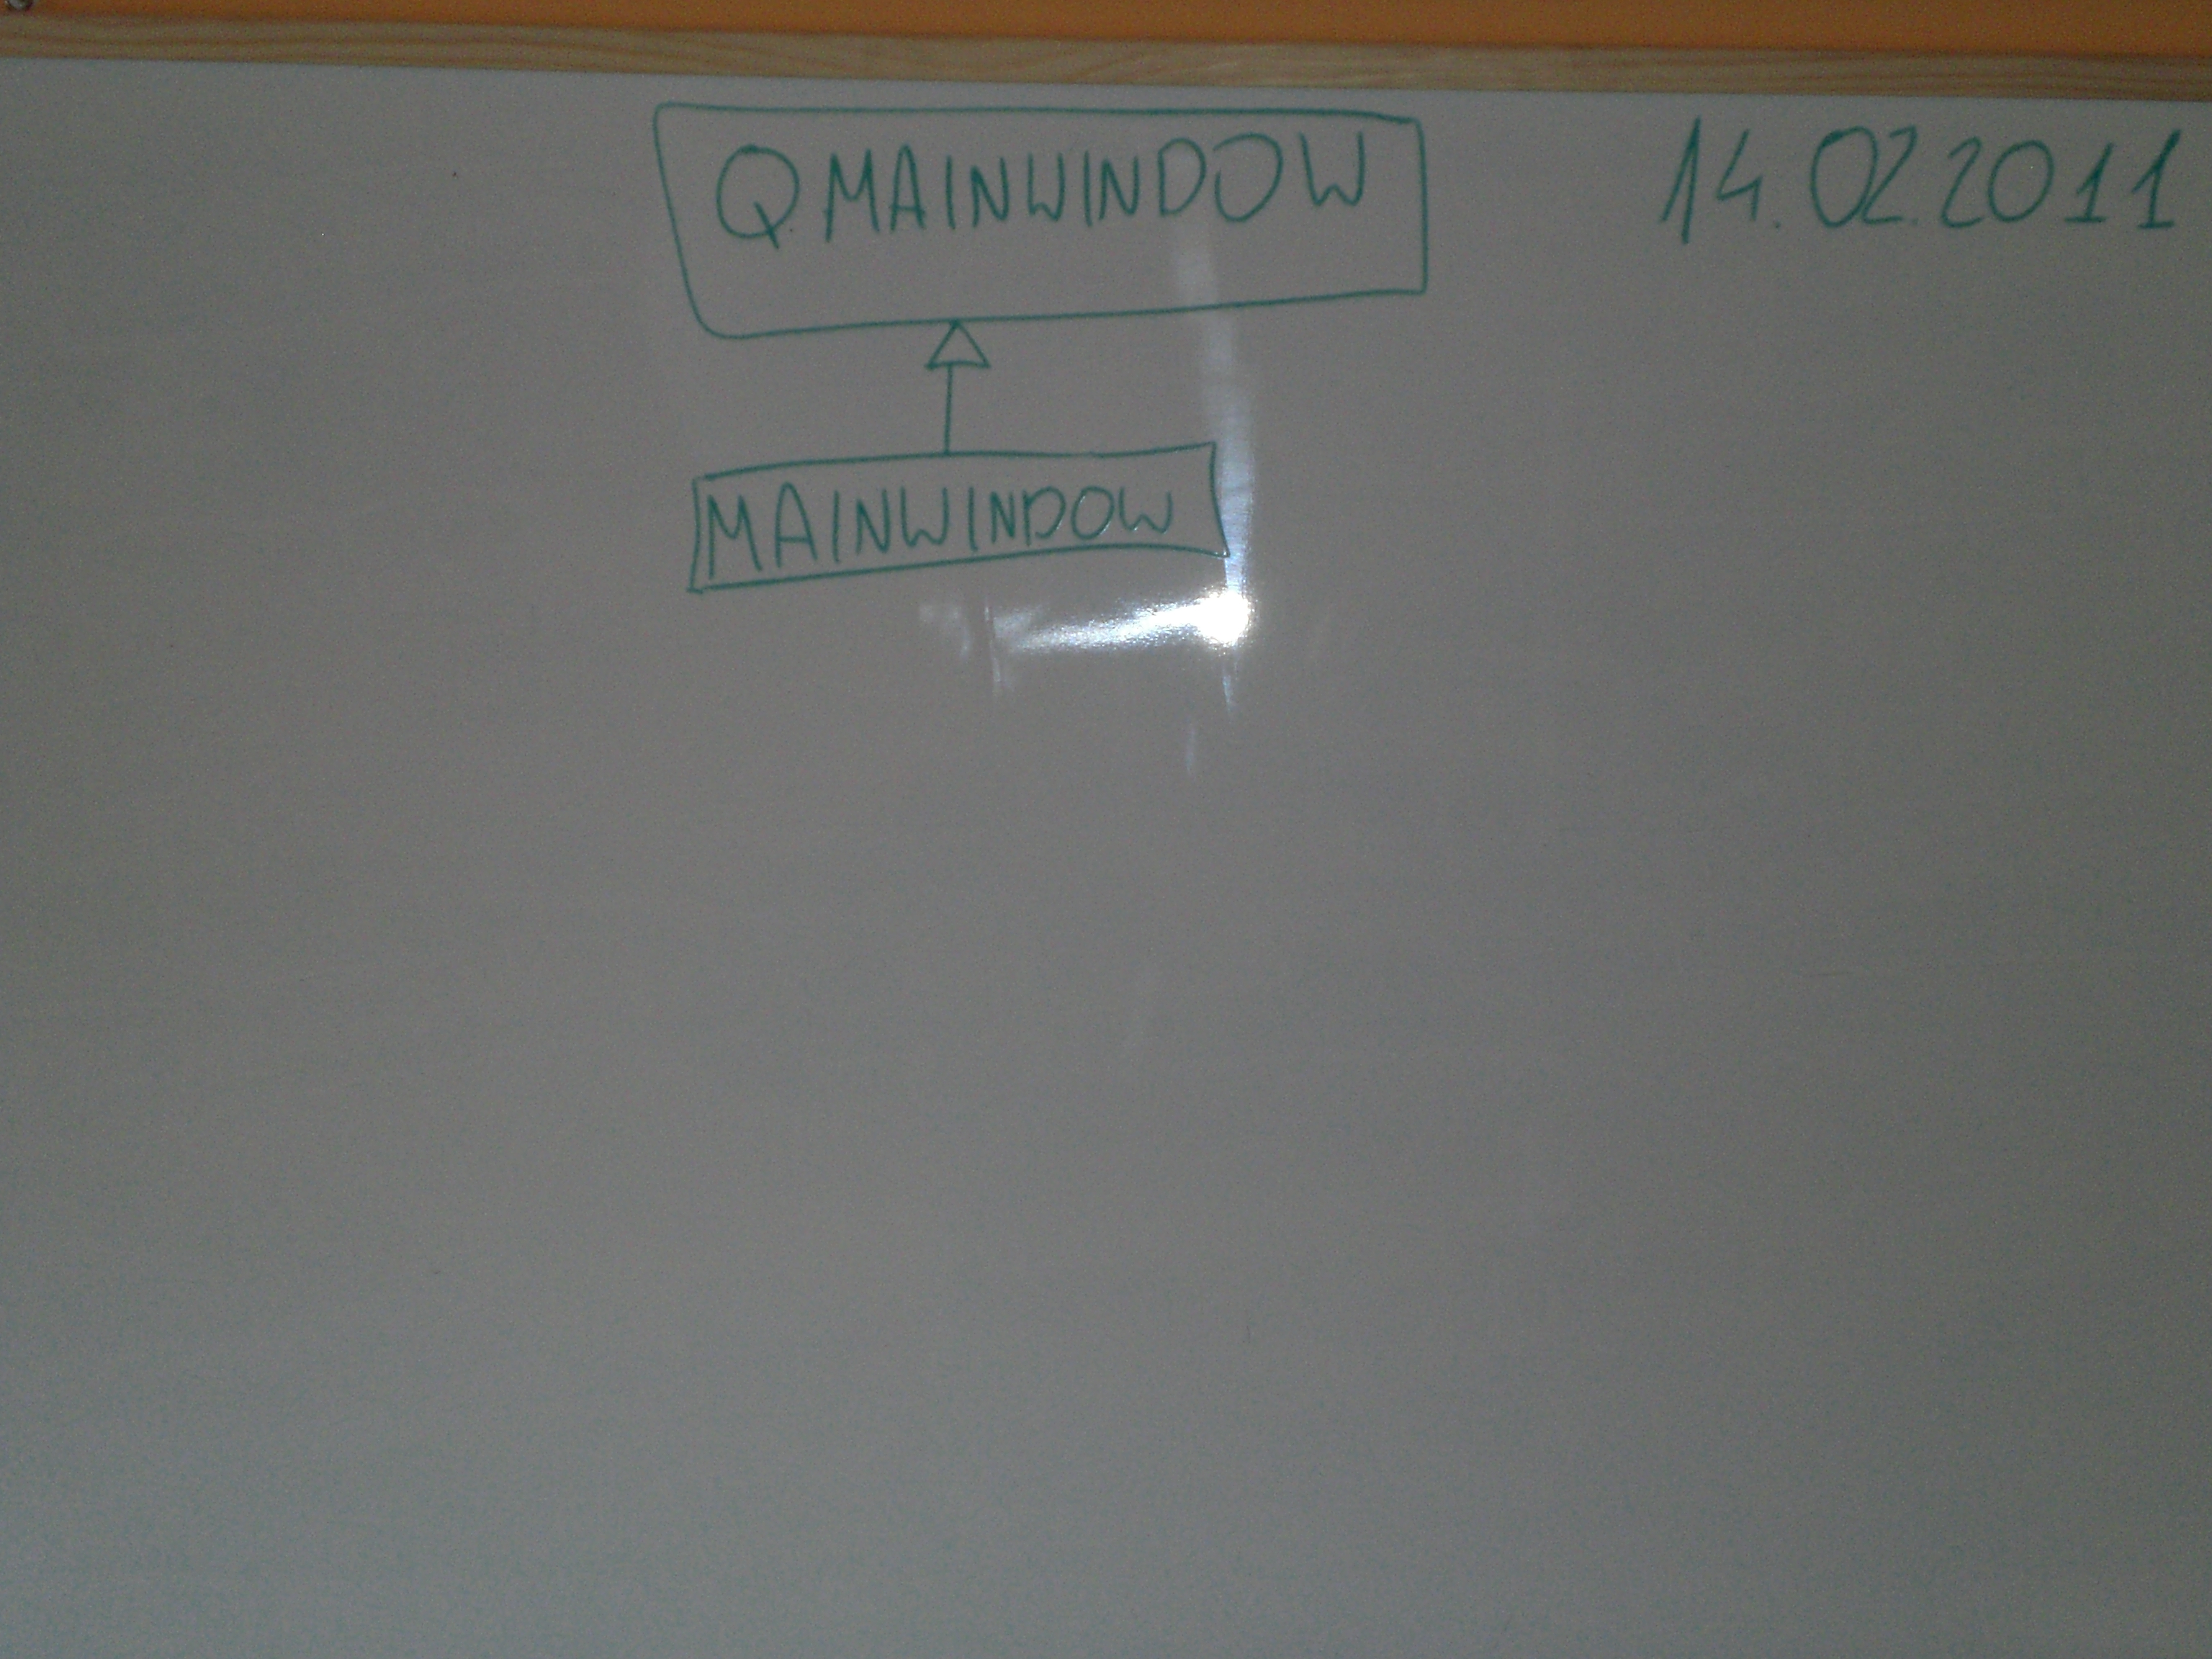 QMAINWINDOW
14.02.2011
MAINWINDOW